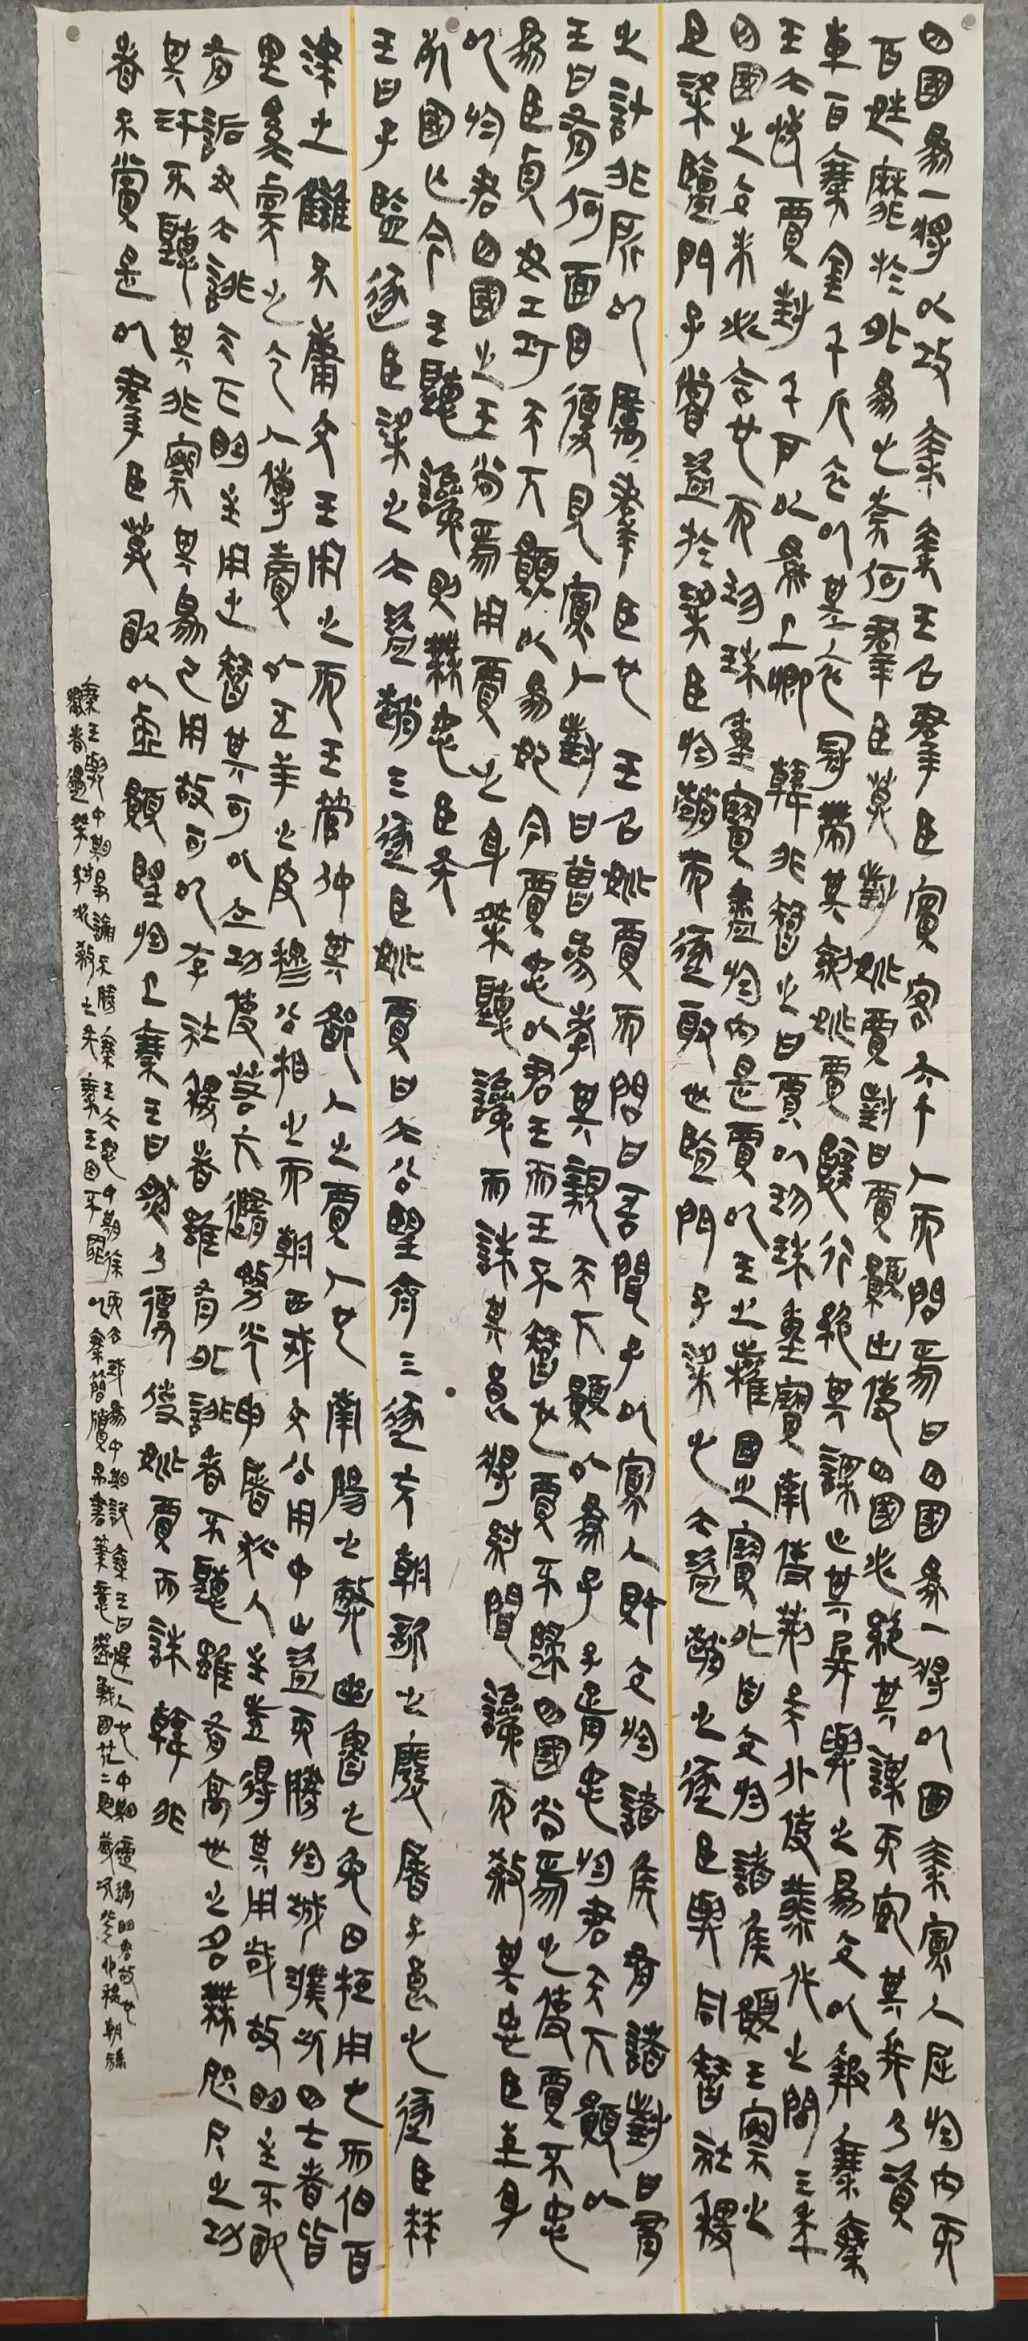 四國為一將以攻秦秦王召羣臣賓客六十人而問焉曰四國為一將以圖秦寡人屈於內而
百姓靡於外為之奈何羣臣莫對姚賈對曰賈願出使四國必絕其謀而安其兵乃資
車百乘金千斤衣以其衣冠帶其劍姚賈辭行絕其謀止其兵與之為交以報秦秦
王大悅賈封千戶以為上卿 韓非知之曰賈以珍珠重寶南使荊吳北使燕代之間三年
四國之交未必合也而珍珠重寶盡於內是賈以王之權國之寶外自交於諸侯願王察之
且梁監門子嘗盜於梁臣於趙而逐取世監門子梁之大盜趙之逐臣與同知社稷
之計非所以厲羣臣也 王召姚賈而問曰吾聞子以寡人財交於諸侯有諸對曰有
王曰有何面目復見寡人對曰曾參孝其親天下願以為子子胥忠於君天下願以
為臣貞女工巧天下願以為妃今賈忠以君王而王不知也賈不歸四國尚焉之使賈不忠
以於君四國之王尚焉用賈之身桀聽讒而誅其良將紂聞讒而殺其忠臣至身
死國亡今王聽讒則無忠臣矣
王曰子監逐臣梁之大盜趙之逐臣姚賈曰太公望齊之逐夫朝歌之廢屠子良之逐臣棘
津之讎不庸文王用之而王管仲其鄙人之賈人也南陽之弊幽魯之免囚桓用之而伯百
里奚虞之乞人傳賣以五羊之皮穆公相之而朝西戎文公用中山盜而勝於城濮此四士者皆
有詬醜大誹天下明主用之知其可以立功使若卞隨務光申屠狄人主豈得其用哉故明主不取
其汙不聽其非察其為己用故可以存社稷者雖有外誹者不聽雖有高世之名無咫尺之功
者不賞是以羣臣莫敢以虛願望於上秦王曰然乃復使姚賈而誅韓非
秦王與中期爭論不勝秦王大怒中期徐而去或為中期說秦王曰悍人也中期適遇明君故也
嚮者遇桀紂必殺之矣秦王因不罪 以秦簡牘帛書筆意